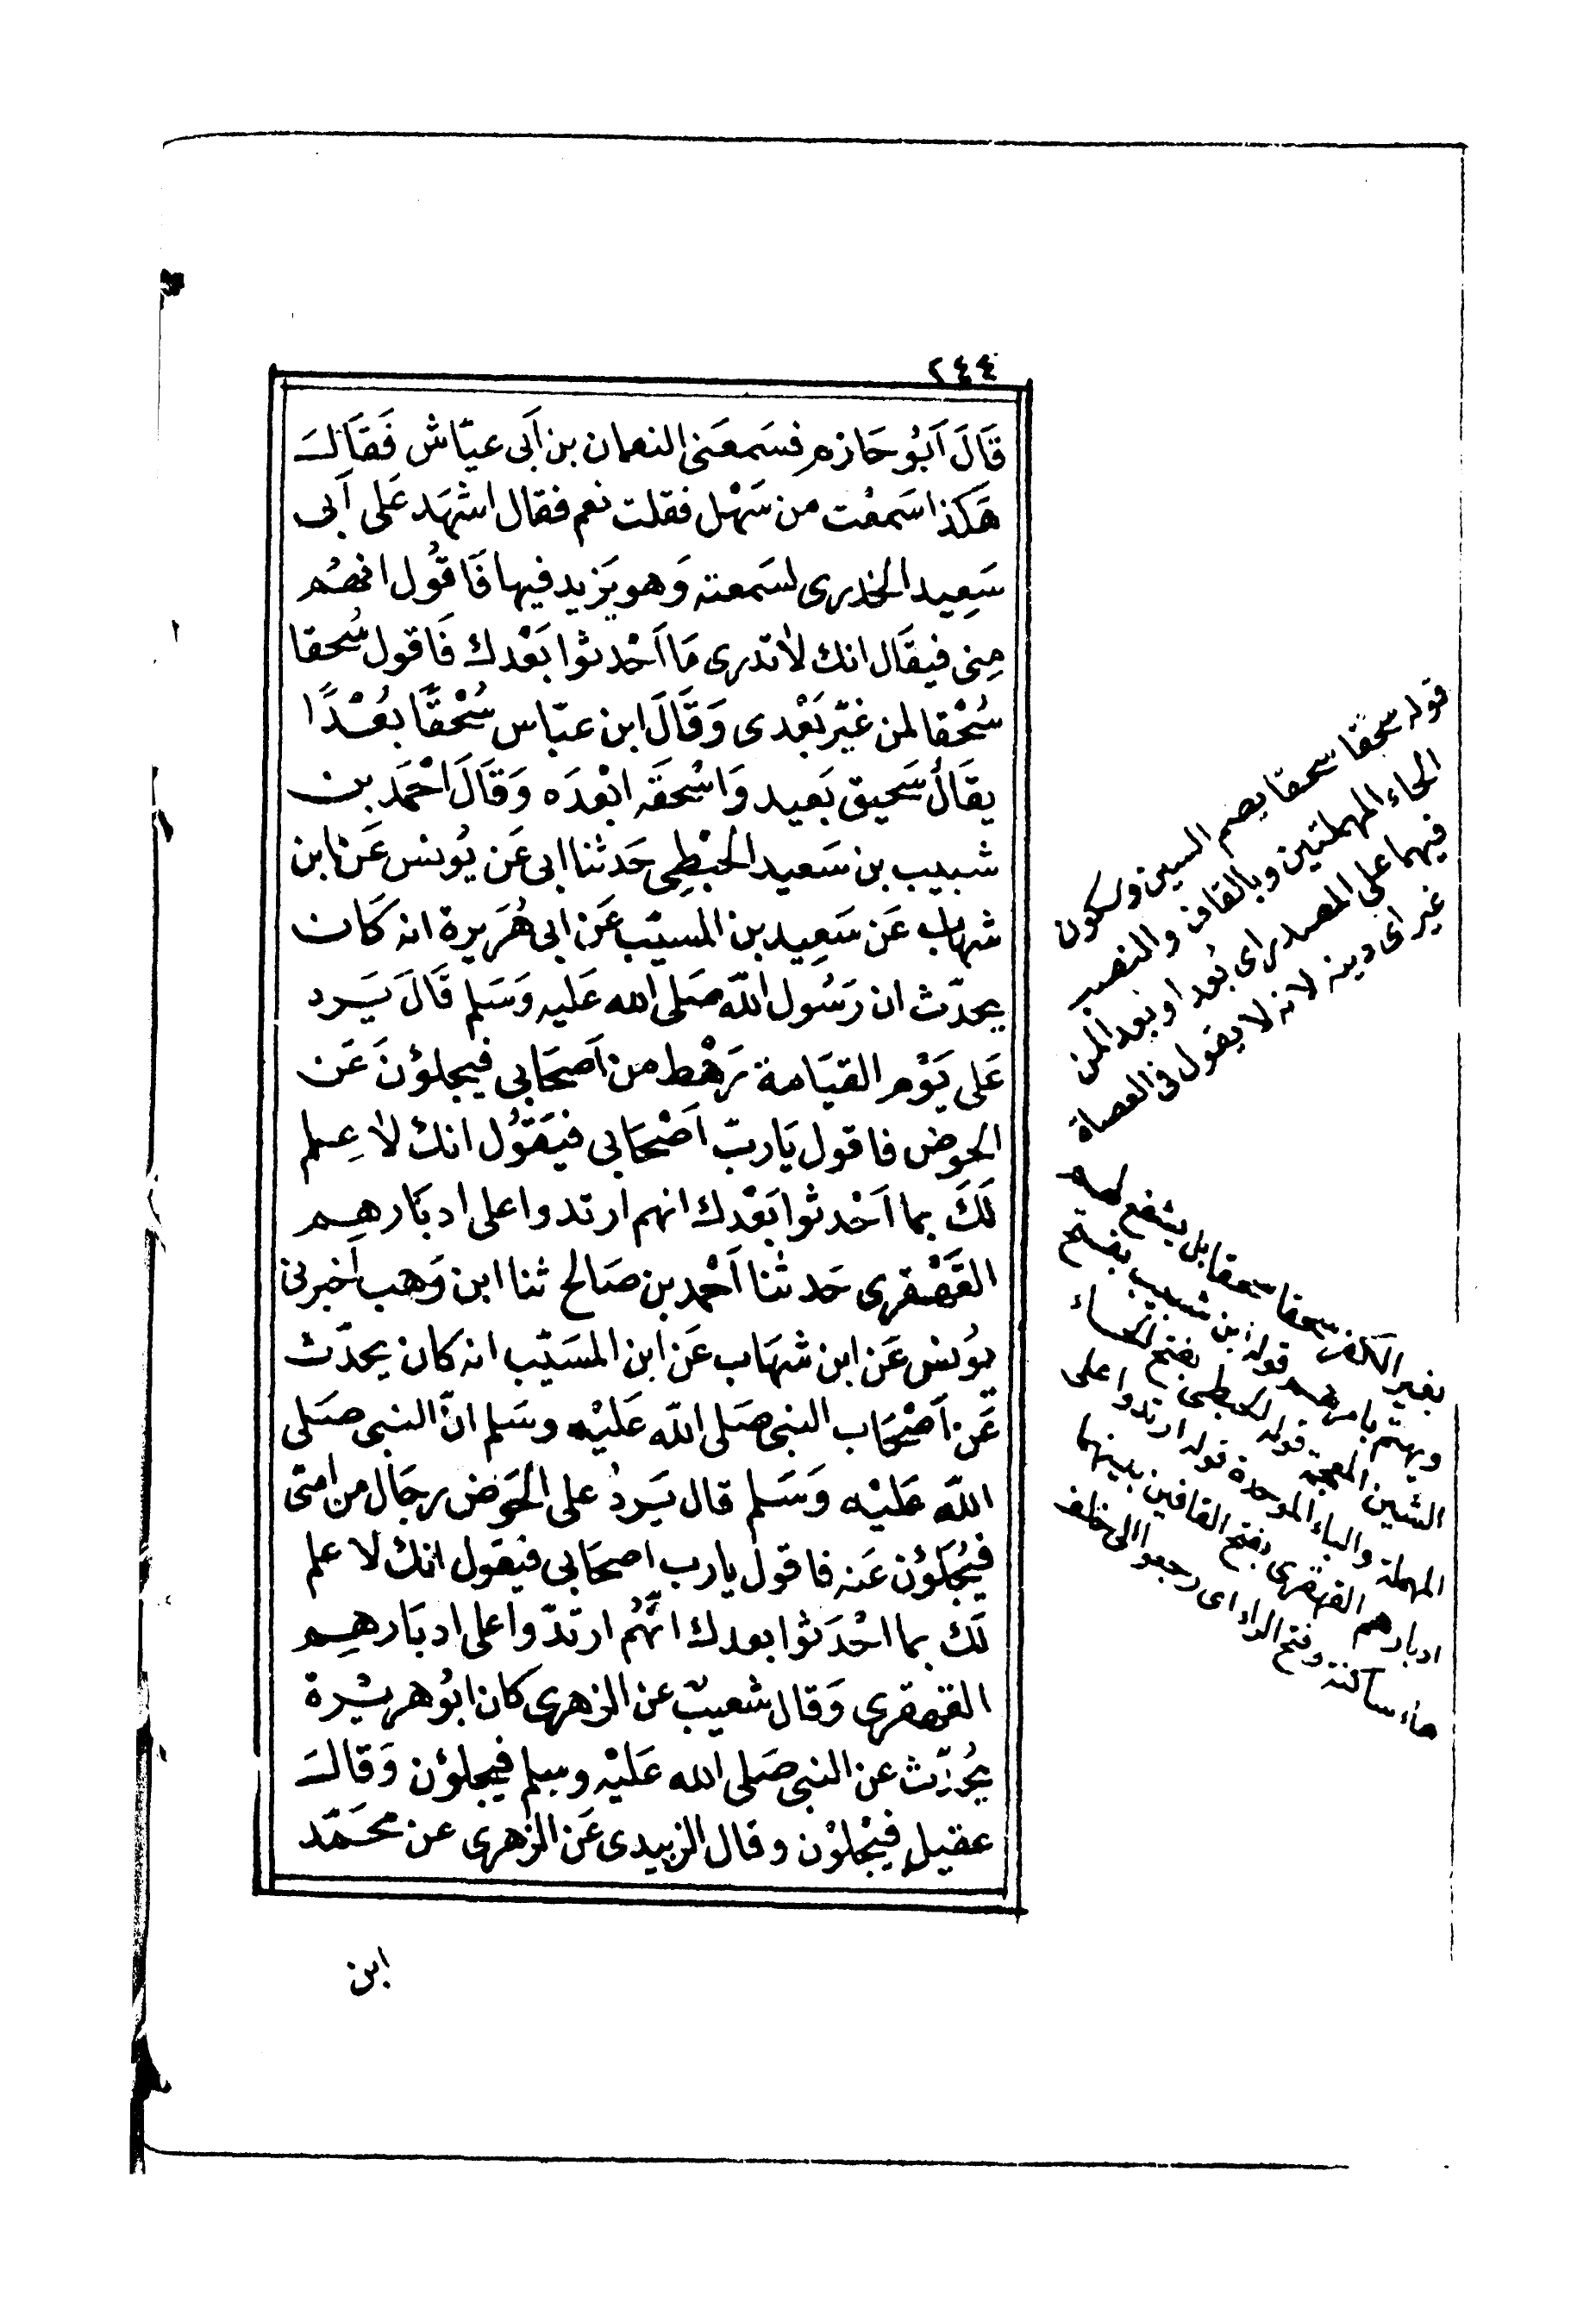 ٢٤٤
قَالَ اَبُو حَازم فسَمعَنى النعمان بن اَبى عيّاش فَقَالَ
هَكذا سَمعْت من سَهْل فقلت نعم فقال اشهَد عَلى اَبى
سَعِيد الخدرى لسَمعته وَهو يَزيد فيها فَاقُول انهُم
مِنى فيقَال انك لا تدرى مَا اَحْدثوا بَعْدك فَاقول سُحقا
سُحْقا لمن غيّر بَعْدى وَقَالَ ابن عبّاس سُحْقًا بُعْدًا
يقَالُ سَحيق بَعيد وَاسْحَقَه ابْعَدَه وَقَالَ احْمَد بن
شبيب بن سَعيد الحبَطِى حَدثنا ابى عَن يُونس عَن ابن
شهاب عَن سَعِيد بن المسيّب عَن ابى هُرَيرة انه كَان
يحدّث ان رَسُول اللّه صَلى الله عَليه وَسَلم قَالَ يَرد
عَلى يَوْم القيَامة رَهْط من اَصحَابى فيحلؤنَ عَن
الحوض فاقول يَاربّ اَصْحَابى فيَقوُل انك لا عِلم
لَكَ بما اَحْدثوا بَعْدك انهم ارتدوا على ادبَارهِم
القَهْقرى حَدثنا اَحْمد بن صَالح ثنا ابن وَهب اَخبرنى
يوُنس عَن ابن شهَاب عَن ابن المسَيّب انه كان يحدّث
عَن اَصْحَاب النبى صَلى اللّه عَليْه وسَلم انّ النبى صَلى
اللّه عَليْه وَسَلم قال يَردُ على الحَوض رجَال من امتى
فيُحَلؤن عَنه فاقول يارب اصحَابى فيقول انك لا علم
لَك بما احْدَثوا بعدك انَّهُم ارتدّوا على ادبَارهِم
القهقرى وَقال شعيبٌ عن الزهرى كان ابُو هريْرة
يُحدّث عن النبى صَلى الله عَليْه وسلم فيجلؤن وَقالَ
عقيل فيُحلؤن وقال الزبيدى عَن الزهرى عن محَمّد
ابن
قوله سحقا سحقا بضم السين وسكون
الحاء المهملتين وبالقاف والنصب
فيهما على المصدر اى بُعدا وبعدا لمن
غير اى دينه لانه لا يقول فى العصاة
بغير الكفر سحقا سحقا بل يشفع لهم
ويهتم بامرهم قوله ابن شبيب بفتح
الشين المعجمة قوله الحبطى بفتح الحاء
المهملة والباء الموحدة قوله ارتدوا على
ادبارهم القهقرى بفتح القافين بينهما
هاء ساكنة وفتح الراء اى رجعوا الى خلف